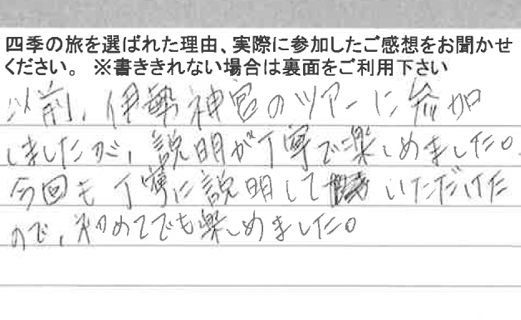 四季の旅を選ばれた理由、実際に参加したご感想をお聞かせ
ください。 ※書ききれない場合は裏面をご利用下さい
以前、伊勢神宮のツアーに参加
しましたが、説明が丁寧で楽しめました。
今回も丁寧に説明して いただけた
ので、初めてでも楽しめました。